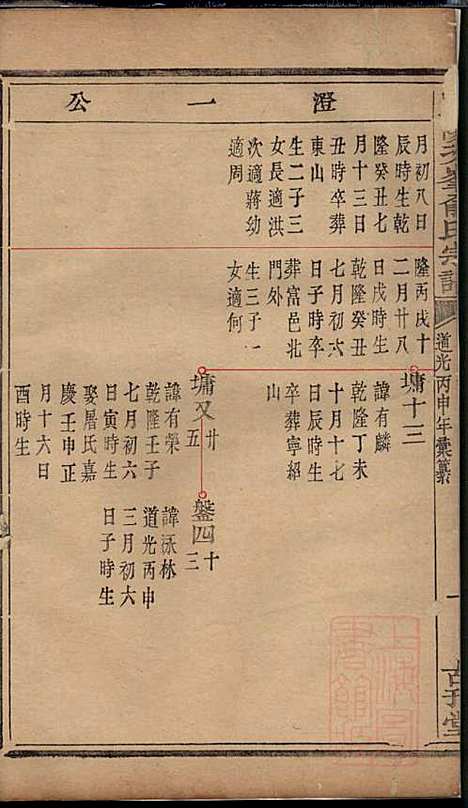 公一澄
月初八日
辰時生乾
隆癸丑七
月十三日
丑時卒葬
東山
生二子三
女長適洪
次適蔣幼
適周
隆丙戌十
二月廿八
日戌時生
乾隆癸丑
七月初六
日子時卒
葬富邑北
門外
生三子一
女適何
墉十三
諱有麟
乾隆丁未
十月十七
日辰時生
卒葬寧紹
山
墉又廿五
諱有榮
乾隆壬子
七月初六
日寅時生
娶屠氏嘉
慶壬申正
月十六日
酉時生
盤四十三
諱泳林
道光丙申
三月初六
日子時生
俞氏宗譜
道光丙申年彙纂